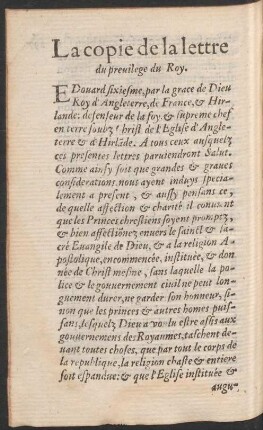 La copie de la lettre
du preuilege du Roy.
EDouard sixiesme, par la grace de Dieu
Roy d'Angleterre, de France, & Hir-
lande: defenseur de la foy. & supreme chef
en terre soubz Christ de l'Eglise d'Angle-
terre & d'Hirlãde. A tous ceux ausquelz
ces presentes lettres paruiendront Salut.
Comme ainsy soit que grandes & graues
considerations nous ayent induyt specia-
lement a present, & aussy pensans ce,
de quelle affection & charité il conuient
que les Princes chrestiens soyent promptz,
& bien affectiõnez enuers le sainct & sa-
cré Euangile de Dieu, & a la religion A-
postolique, encommencée, instituée, & don-
née de Christ mesme, sans laquelle la po-
lice & le gouuernement ciuil ne peut lon-
guement durer, ne garder son honneur, si-
non que les princes & autres homes puis-
sans, lesquelz Dieu a voulu estre assis aux
gouuernemens des Royaumes, taschent de-
uant toutes choses, que par tout le corps de
la republique, la religion chaste & entiere
soit espandue: & que l'Eglise instituée &
augu-